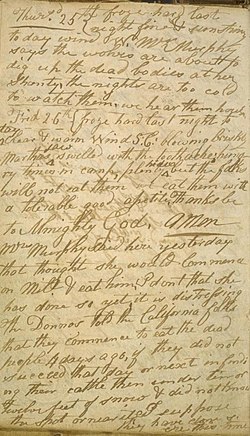 Thurs. 25th froze hard last
night fine & sunshiny
to day wind W. Mrs Murphy
says the wolves are about to
dig up the dead bodies at her
shanty, the nights are too cold
to watch them, we hear them howl
Frid 26th froze hard last night to
day clear & warm Wind S.E. blowing briskly
Martha's jaw swelled with the toothache; hung
ry times in camp, plenty hides but the folks
will not eat them we eat them with
a tolerable good apetite. Thanks be
to Almighty God. Amen
Mrs Murphy said here yesterday
that thought she would commence
on Milt. & eat him. I dont that she
has done so yet, it is distressing
The Donnos told the California folks
that they commence to eat the dead
people 4 days ago, if they did not
succeed that day or next in find
ing their cattle then under ten or
twelve feet of snow & did not know
the spot or near it, I suppose
they have done so ere this time